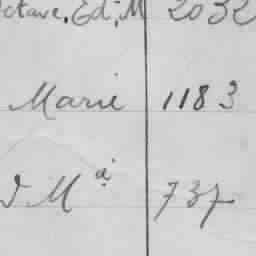 Octave, Ed, M 2032
Marie 1183
J M a 737